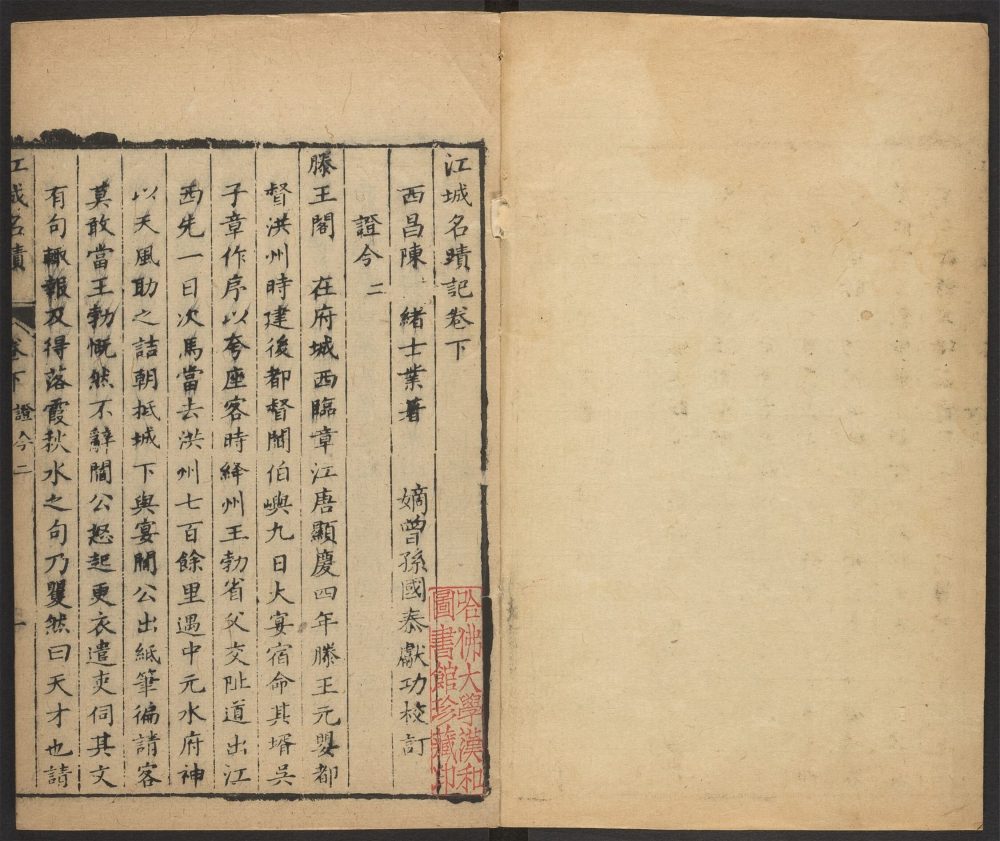 江城名蹟記卷下
西昌陳 緒士業著 嫡曾孫國泰獻功校訂
證今二
滕王閣 在府城西臨章江唐顯慶四年滕王元嬰都
督洪州時建後都督閻伯嶼九日大宴宿命其壻吳
子章作序以夸座客時絳州王勃省父交阯道出江
西先一日次馬當去洪州七百餘里遇中元水府神
以天風助之詰朝抵城下與宴閻公出紙筆徧請客
莫敢當王勃慨然不辭閻公怒起更衣遣吏伺其文
有句輒報及得落霞秋水之句乃矍然曰天才也請
江城名蹟 卷下 證今二 一
哈佛大學漢和
圖書館珍藏印